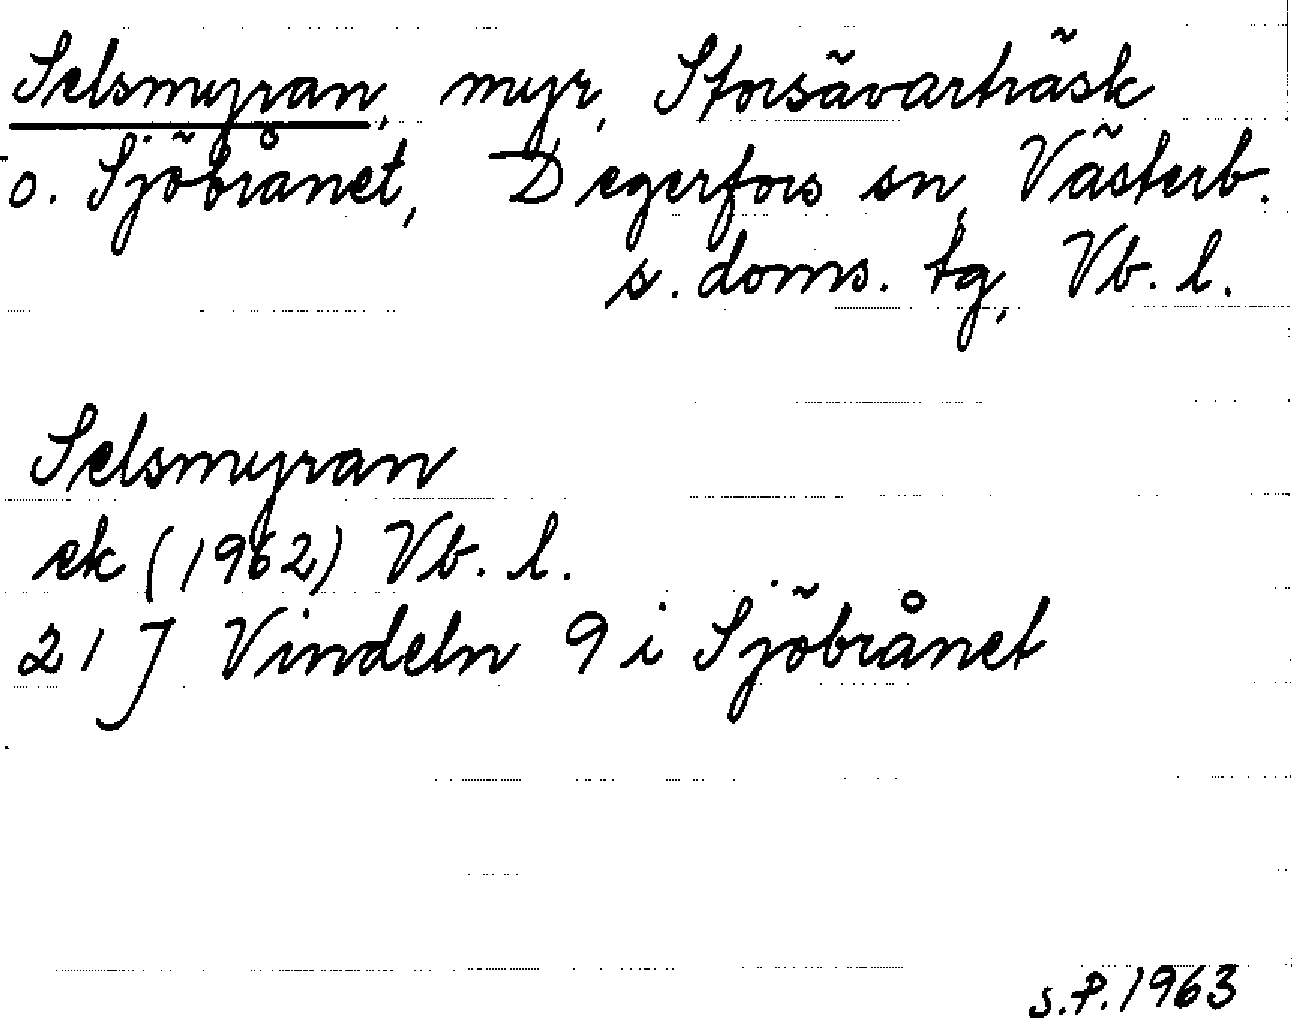 Selsmyran, myr, Storsävarträsk
o. Sjöbrånet, Degerfors sn, Västerb.
s. doms. tg, Vb. l.
Selsmyran
ek (1962) Vb. l.
21 J Vindeln 9 i Sjöbrånet
S.P. 1963